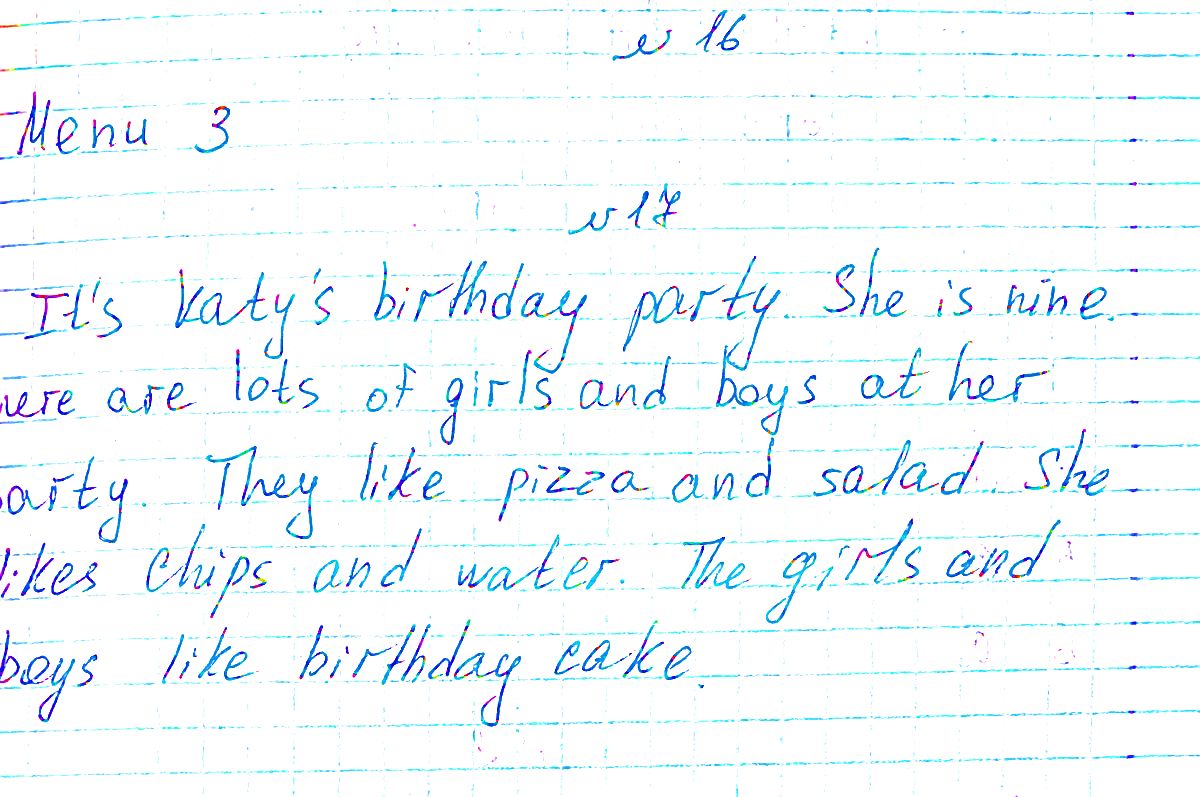 № 16
Menu 3
№ 17
It's Katy's birthday party. She is nine.
here are lots of girls and boys at her
party. They like pizza and salad. She
likes chips and water. The girls and
boys like birthday cake.